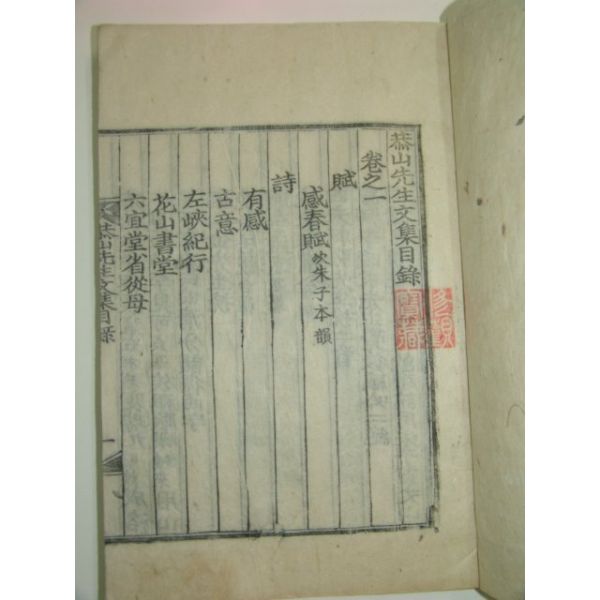 蔡山先生文集目錄
卷之一
賦
感春賦 次朱子本韻
詩
有感
古意
左峽紀行
花山書堂
六宜堂省從母
山先生文集目錄
一